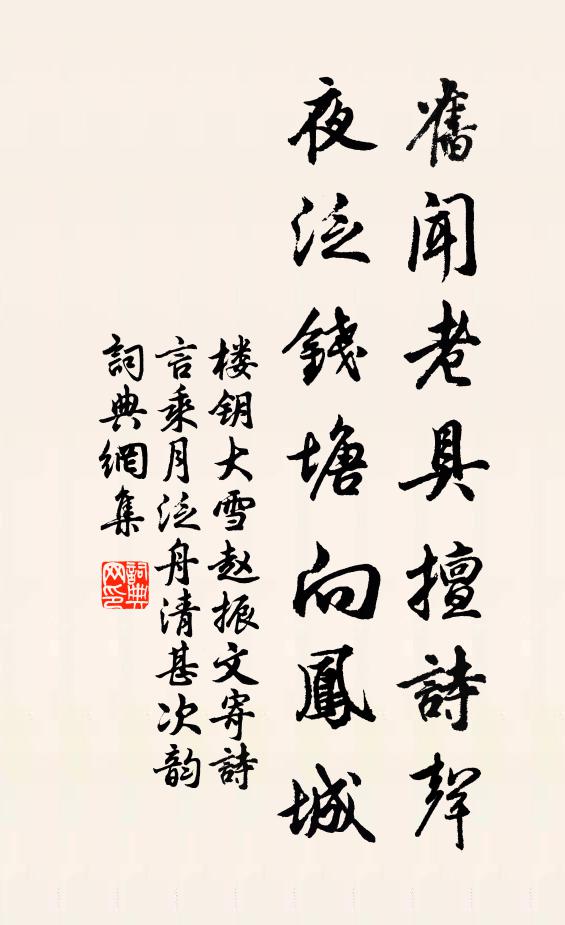 舊聞老具擅詩聲
夜泛錢塘向鳳城
楼钥大雪赵振文寄詩
言乘月泛舟清甚次韵
詞典網集
詞典
网印